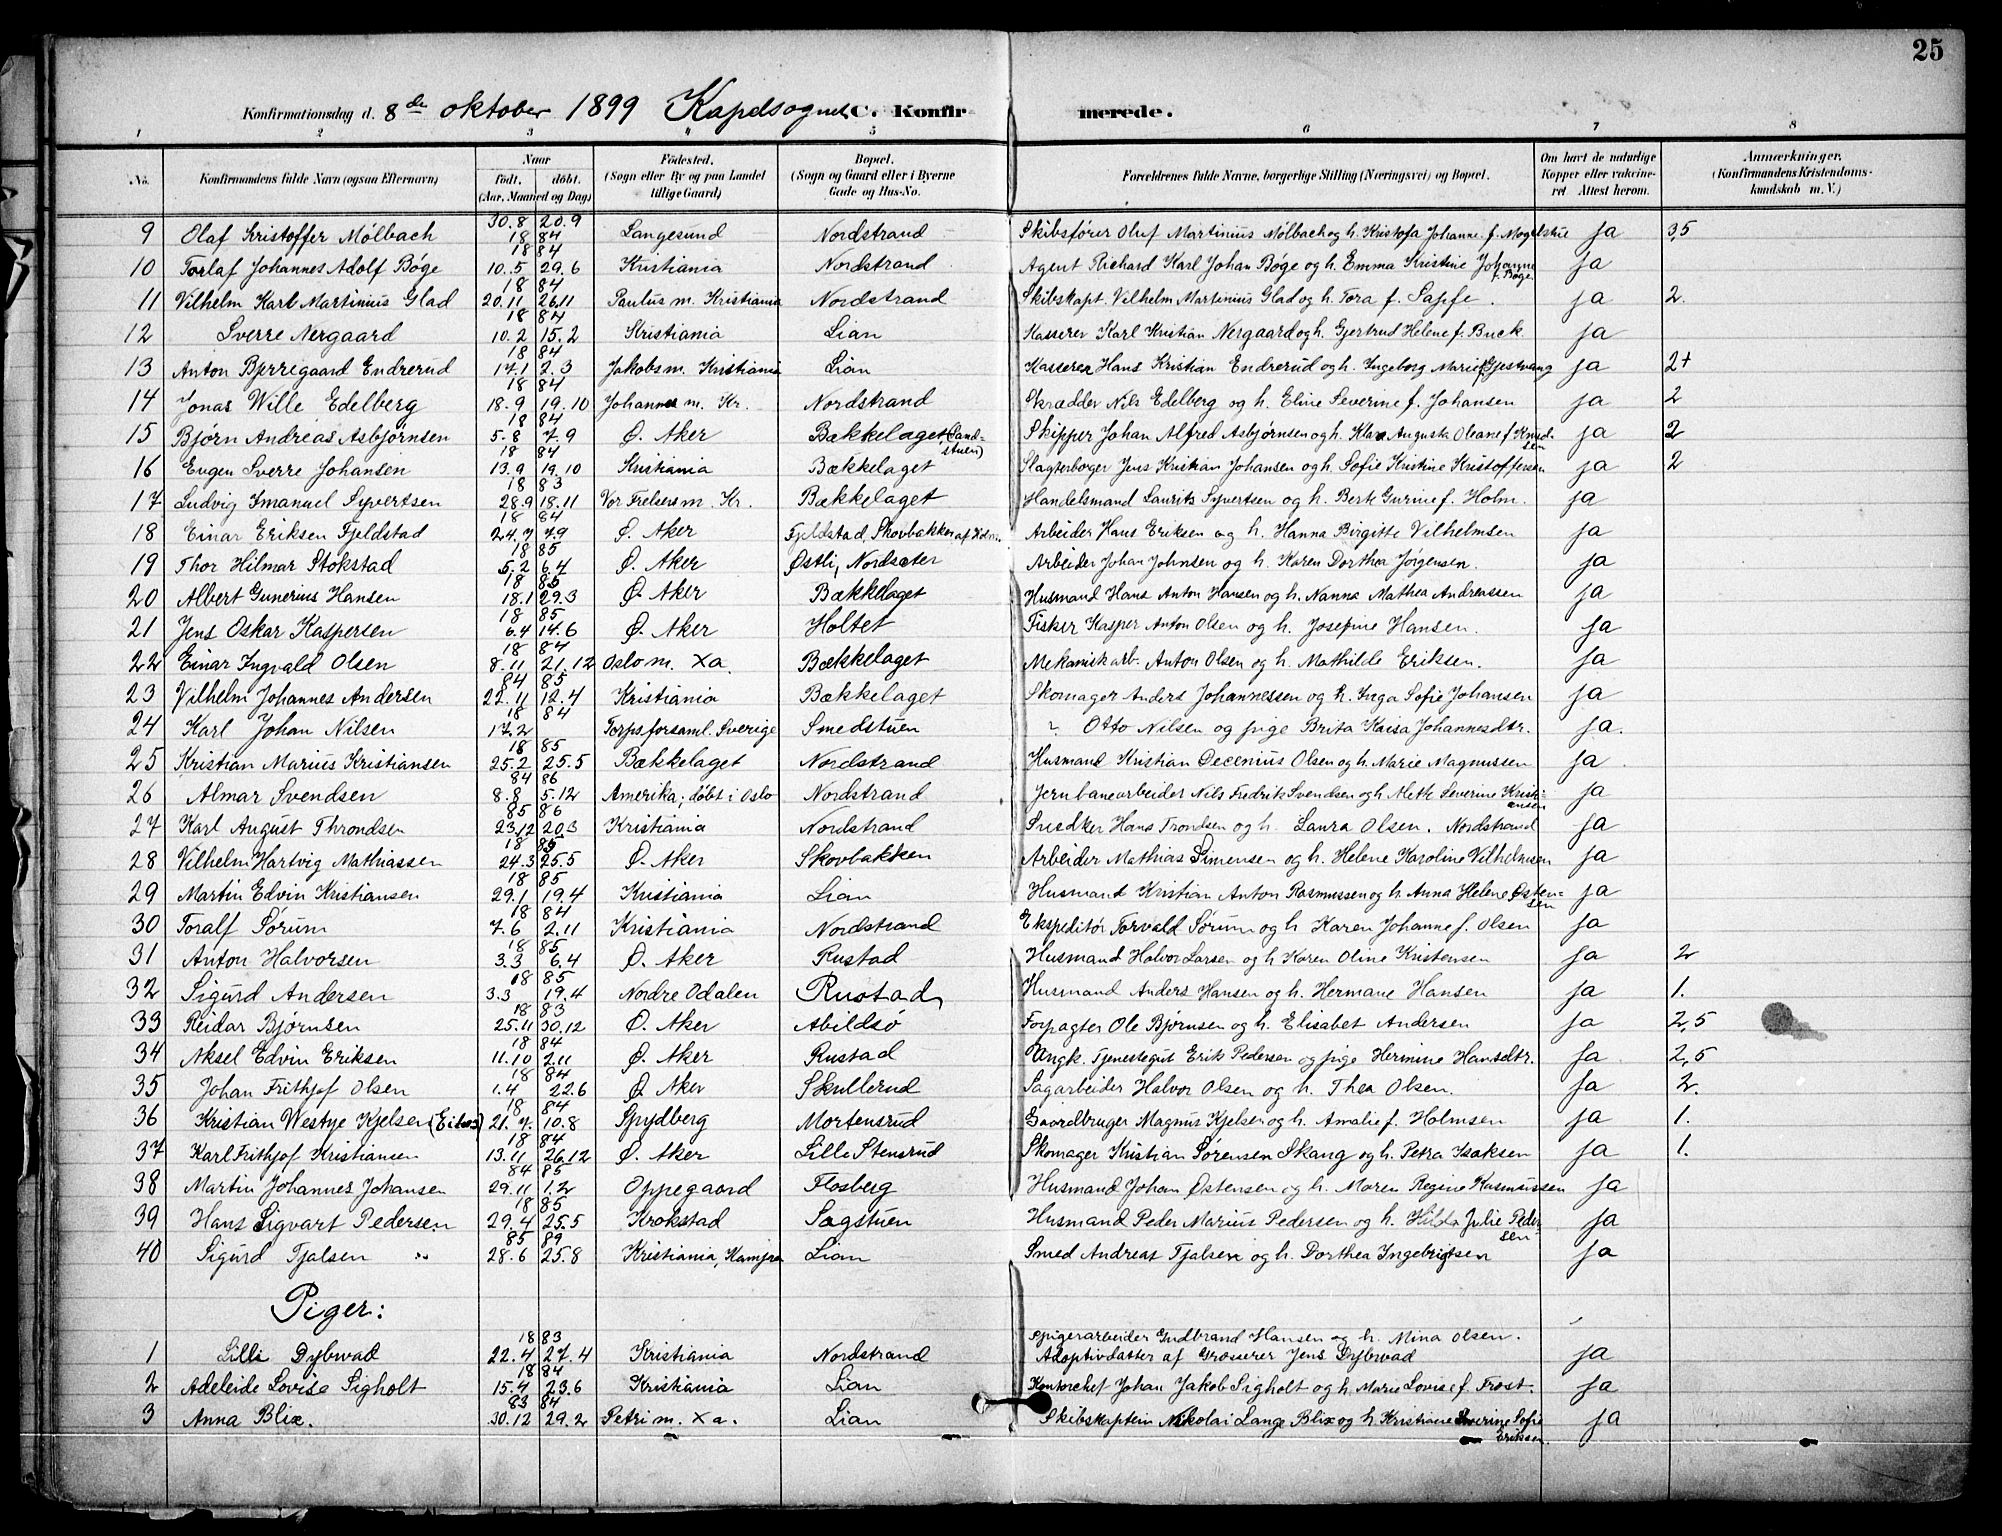 25
Konfirmationsdag d. 8de oktober 1899 Kapelsognet C. Konfirmerede.
1 2 3 4 5 6 7 8
No. Konfirmandens fulde Navn (ogsaa Efternavn) Naar født, døbt. (Aar, Maaned og Dag) Fødested. (Sogn eller By og paa Landet tillige Gaard) Bopæl. (Sogn og Gaard eller i Byerne Gade og Hus-No. Forældrenes fulde Navne, borgerlige Stilling (Næringsvei) og Bopæl. Om havt de naturlige Kopper eller vaccineret Attest herom. Anmærkninger. (Konfirmandens Kristendomskundskab m. V.)
9 Olaf Kristoffer Mölbach 30.8 20.9 18 84 Langesund Nordstrand Skibsfører Oluf Martinius Mölbach og h. Kristofa Johanne f. Mogelstue ja 3,5
10 Torlaf Johannes Adolf Böge 18 84 10.5 29.6 Kristiania Nordstrand Agent Richard Karl Johan Böge og h. Emma Kristine Johanne f. Böge ja
11 Vilhelm Karl Martinius Glad 18 84 20.11 26.11 Paulus m. Kristiania Nordstrand Skibskapt. Vilhelm Martinius Glad og h. Tora f. Sapfe. ja 2.
12 Sverre Nergaard 18 84 10.2 15.2 Kristiania Lian Kasserer Karl Kristian Nergaard og h. Gjertrud Helene f. Buck ja
13 Anton Bjerregaard Endrerud 18 84 17.1 2.3 Jakobs m. Kristiania Lian Kasserer Hans Kristian Endrerud og h. Ingeborg Marie f. Gjestvang ja 2+
14 Jonas Wille Edelberg 18 84 18.9 19.10 Johannes m. Kr. Nordstrand Skrædder Nils Edelberg og h. Eline Severine f. Johansen ja 2
15 Bjørn Andreas Asbjørnsen 18 84 5.8 7.9 Ø. Aker Bækkelaget (Sandstuen) Skipper Johan Alfred Asbjørnsen og h. Klara Augusta Oleane f. Knudsen ja 2
16 Eugen Sverre Johansen 18 84 13.9 19.10 Kristiania Bækkelaget Slagterborger Jens Kristian Johansen og h. Sofie Kristine Kristoffersen ja 2
17 Ludvig Imanuel Syvertsen 18 83 28.9 18.11 Vor Frelsers m. Kr. Bækkelaget Handelsmand Laurits Syvertsen og h. Berte Gurine f. Holm. ja
18 Einar Eriksen Fjeldstad 18 84 24.7 7.9 Ø. Aker Fjeldstad, Skovbakken af Arbeider Hans Eriksen og h. Hanna Birgitte Vilhelmsen ja
19 Thor Hilmar Stokstad 18 85 5.2 6.4 Ø. Aker Østli, Nordsæter Arbeider Johan Johnsen og h. Karen Dorthea Jørgensen. ja
20 Albert Gunerius Hansen 18 85 18.1 29.3 Ø. Aker Bækkelaget Husmand Hans Anton Hansen og h. Nanna Mathea Andreassen ja
21 Jens Oskar Kaspersen 18 85 6.4 14.6 Ø. Aker Holtet Fisker Kasper Anton Olsen og h. Josefine Hansen. ja
22 Einar Ingvald Olsen 18 84 8.11 21.12 Oslo m. Xa. Bækkelaget Mekanisk arb. Anton Olsen og h. Mathilde Eriksen. ja
23 Vilhelm Johannes Andersen 84 85 22.11 12.4 Kristiania Bækkelaget Skomager Anders Johannessen og h. Inga Sofie Johansen ja
24 Karl Johan Nilsen 18 84 17.2 Torps forsaml. Sverige Smedstuen " Otto Nilsen og pige Brita Kaisa Johannesdtr. ja.
25 Kristian Marius Kristiansen 18 85 25.2 25.5 Bækkelaget Nordstrand Husmand Kristian Decenius Olsen og h. Marie Magnussen ja.
26 Almar Svendsen 84 86 8.8 5.12 Amerika; døbt i Oslo Nordstrand Jernbanearbeider Nils Fredrik Svendsen og h. Mette Severine Kristiansen ja
27 Karl August Throndsen 85 86 23.12 20.3 Kristiania Nordstrand Snedker Hans Trondsen og h. Laura Olsen. Nordstrand ja
28 Vilhelm Hartvig Mathiassen 18 85 24.3 25.5 Ø. Aker Skovbakken Arbeider Mathias Simensen og h. Helene Karoline Vilhelmsen ja
29 Martin Edvin Kristiansen 18 85 29.1 19.4 Kristiania Lian Husmand Kristian Anton Rasmussen og h. Anna Helene Østensen ja
30 Toralf Sørum 18 84 7.6 2.11 Kristiania Nordstrand Ekspeditör Torvald Sørum og h. Karen Johanne f. Olsen ja
31 Anton Halvorsen 18 85 3.3 6.4 Ø. Aker Rustad Husmand Halvor Larsen og h. Karen Oline Kristensen ja 2
32 Sigurd Andersen 18 85 3.3 19.4 Nordre Odalen Rustad Husmand Anders Hansen og h. Hermane Hansen ja 1.
33 Reidar Bjørnsen 18 83 25.11 30.12 Ø. Aker Abildsö Forpagter Ole Bjørnsen og h. Elisabet Andersen ja 2,5
34 Aksel Edvin Eriksen 18 84 11.10 2.11 Ø. Aker Rustad Ungk. Tjenestegut Erik Pedersen og pige Hermine Hansdtr. ja 2,5
35 Johan Frithjof Olsen 18 84 1.4 22.6 Ø. Aker Skullerud Sagarbeider Halvor Olsen og h. Thea Olsen. ja 2.
36 Kristian Westye Kjelsen 18 84 21.7 10.8 Spydberg Mortensrud Gaardbruger Magnus Kjelsen og h. Amalie f. Holmsen ja 1.
37 Karl Frithjof Kristiansen 18 84 13.11 26.12 Ø. Aker Lille Stensrud Skomager Kristian Sørensen Skang og h. Petra Isaksen ja 1.
38 Martin Johannes Johansen 84 85 29.11 1.2 Oppegaard Flosberg Husmand Johan Østensen og h. Maren Regine Rasmussen ja
39 Hans Sigvart Pedersen 18 85 29.4 25.5 Krokstad Sagstuen Husmand Peder Marius Pedersen og h. Hilda Julie Pedersen ja
40 Sigurd Tjalsen 85 89 28.6 25.8 Kristiania, Kampen Lian Smed Andreas Tjalsen og h. Dorthea Ingebrigtsen ja
Piger:
1 Lilli Dybwad 18 83 22.4 27.4 Kristiania Nordstrand Spigerarbeider Gudbrand Hansen og h. Mina Olsen. Adoptivdatter af Grosserer Jens Dybwad ja
2 Adeleide Lovise Sigholt 18 84 15.4 23.6 Kristiania Lian Kontorchef Johan Jakob Sigholt og h. Marie Lovise f. Frost. ja
3 Anna Blix. 83 84 30.12 29.2 Petri m. Xa. Lian Skibskaptein Nikolai Lange Blix og h. Kristiane Severine Sofie Eriksen. ja